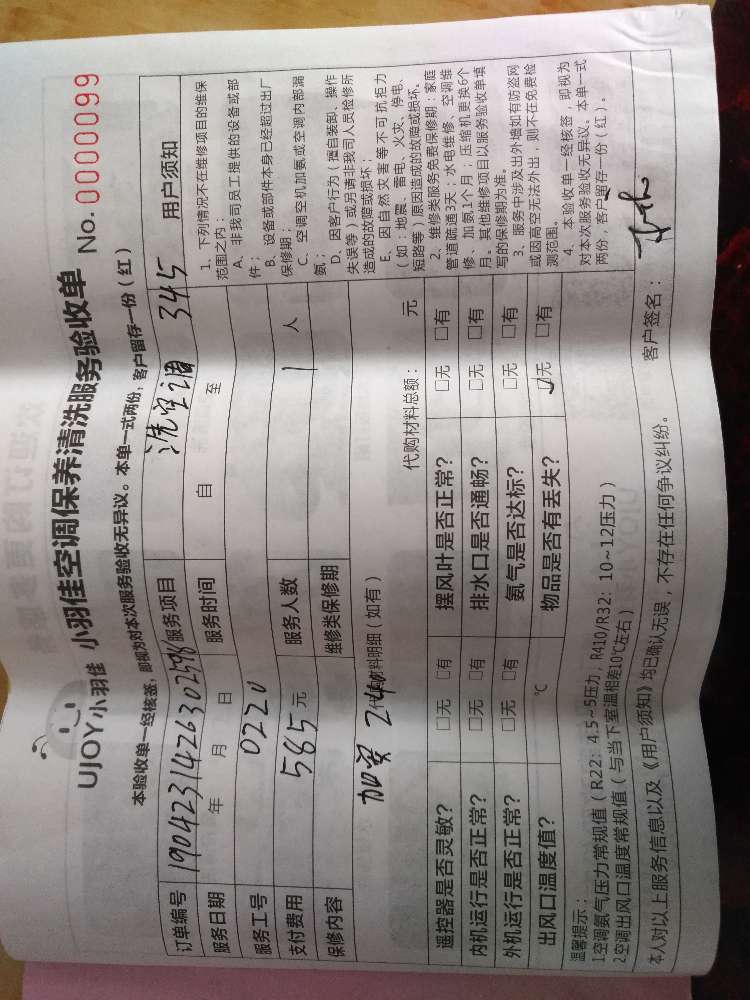 UJOY小羽佳 小羽佳空调保养清洗服务验收单 No. 0000099
本验收单一经核签，即视为对本次服务验收无异议。本单一式两份，客户留存一份（红）
订单编号 服务项目 洗空调 345
服务日期 年 月 日 服务时间 自 至
服务工号 0220
支付费用 585元 服务人数 1人
保修内容 维修类保修期
加 240
代购材料明细（如有） 代购材料总额： 元
遥控器是否灵敏？ □无 □有 摆风叶是否正常？ □无 □有
内机运行是否正常？ □无 □有 排水口是否通畅？ □无 □有
外机运行是否正常？ □无 □有 氨气是否达标？ □无 □有
出风口温度值？ ℃ 物品是否有丢失？ ☑无 □有
用户须知
1、下列情况不在维修项目的维保
范围之内：
A、非我司员工提供的设备或部
件；
B、设备或部件本身已经超过出厂
保修期；
C、空调空机加氨或空调内部漏
氨；
D、因客户行为（擅自装卸、操作
失误等）或另请非我司人员检修所
造成的故障或损坏；
E、因自然灾害等不可抗拒力
（如：地震、雷电、火灾、停电、
短路等）原因造成的故障或损坏。
2、维修类服务免费保修期：家庭
管道疏通3天；水电维修、空调维
修、加氨1个月；压缩机更换6个
月。其他维修项目以服务验收单填
写的保修期为准。
3、服务中涉及出外墙如有防盗网
或因高空无法外出，则不在免费检
测范围。
4、本验收单一经核签，即视为
对本次服务验收无异议。本单一式
两份，客户留存一份（红）。
温馨提示：
1空调氨气压力常规值（R22：4.5~5压力，R410/R32：10~12压力）
2空调出风口温度常规值（与当下室温相差10℃左右）
本人对以上服务信息以及《用户须知》均已确认无误，不存在任何争议纠纷。 客户签名：